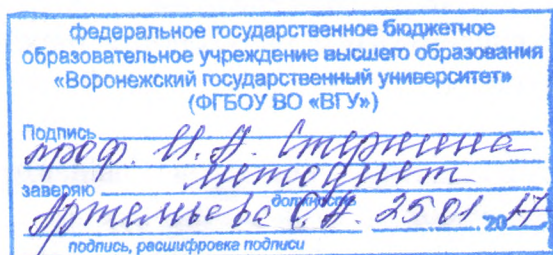 федеральное государственное бюджетное
образовательное учреждение высшего образования
«Воронежский государственный университет»
(ФГБОУ ВО «ВГУ»)
Подпись
проф. И. А. Стернина
заверяю методист
должность
Артемьева 25 01 2017
подпись, расшифровка подписи